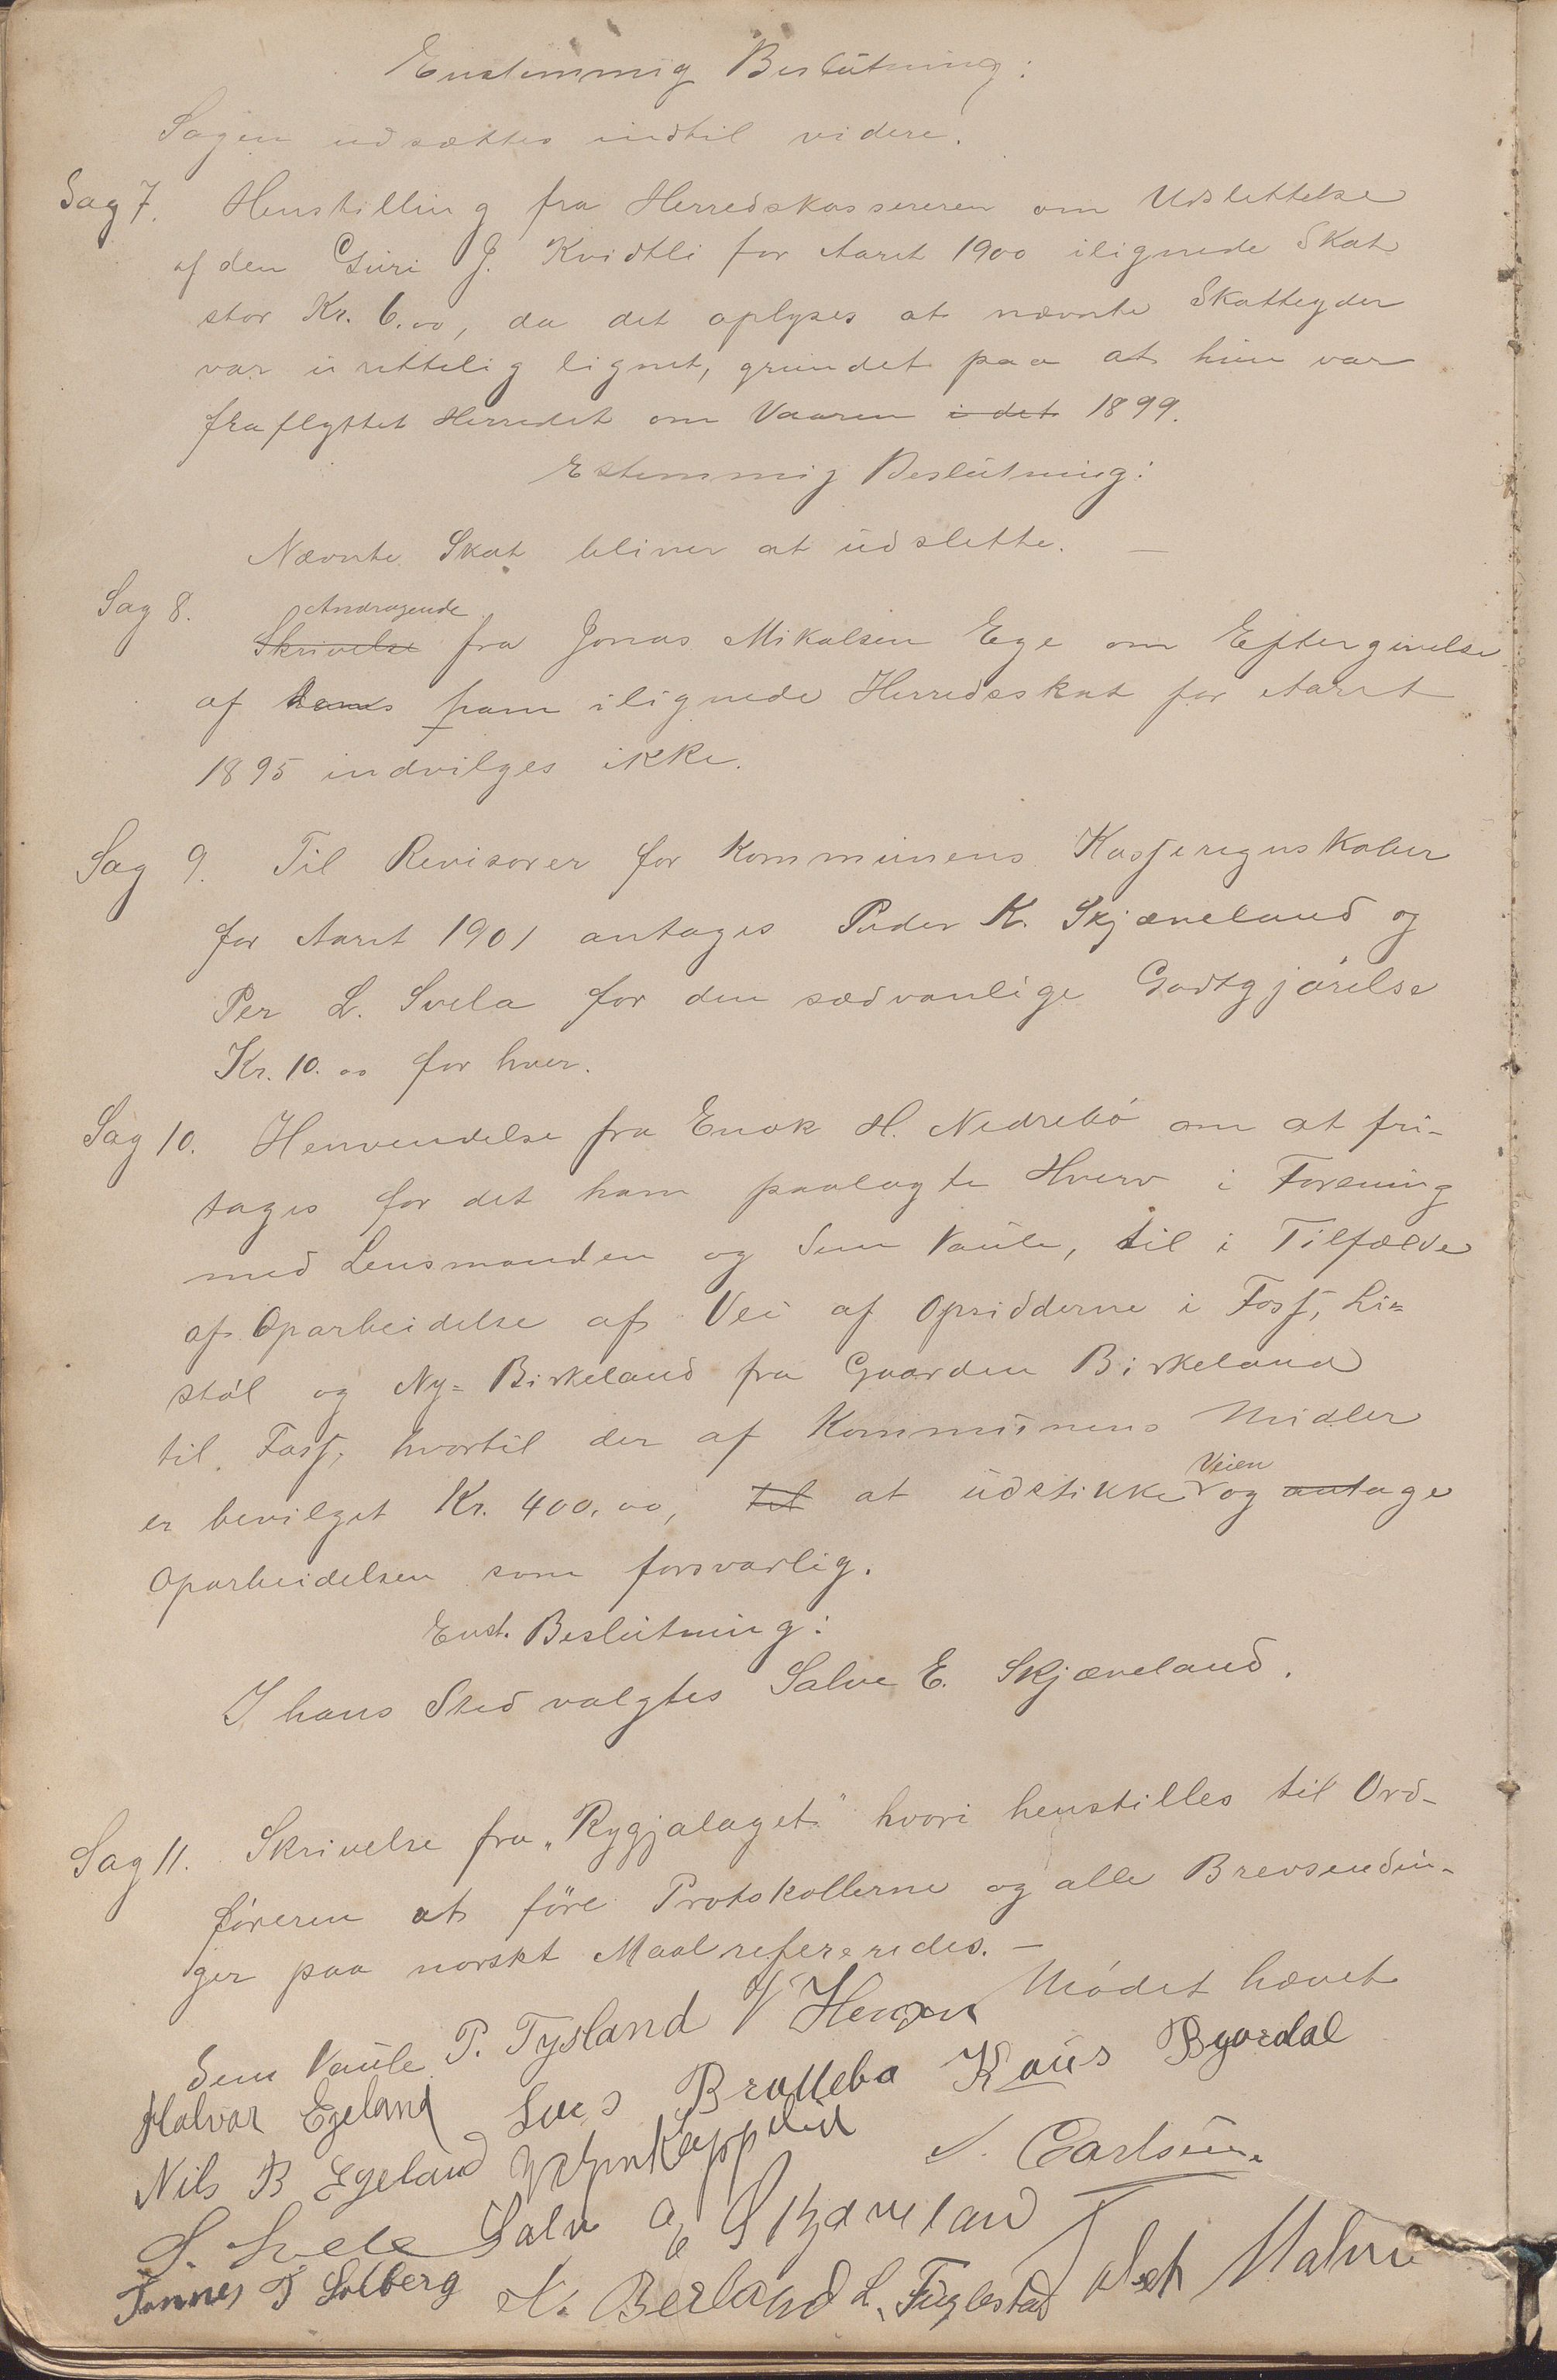 Enstemmig Beslutning:
Sagen udsættes indtil videre.
Sag 7. Henstilling fra Herredskassereren om Udslettelse
af den Guri J. Kvidtli for Aaret 1900 ilignede Skat
stor Kr. 6.00, da det oplyses at nævnte Skatteyder
var urettelig lignet, grundet paa at hun var
fraflyttet Herredet om Vaaren i det 1899.
Estemmig Beslutning:
Nævnte Skat bliver at udslette. —
Sag 8. Andragende
Skrivelse fra Jonas Mikalsen Ege om Eftergivelse
af ham ilignede Herredsskat for Aaret
1895 indvilges ikke.
Sag 9. Til Revisorer for Kommunens Kasseregnskaber
for Aaret 1901 antages Peder K. Skjæveland og
Per L. Svela for den sædvanlige Godtgjörelse
Kr. 10.00 for hver.
Sag 10. Henvendelse fra Enok H. Nedrebö om at fri-
tages for det ham paalagte Hverv i Forening
med Lensmanden og Sem Vaule, til i Tilfælde
af Oparbeidelse af Vei af Opsidderne i Foss, Li=
stöl og Ny=Birkeland fra Gaarden Birkeland
til Foss, hvortil der af Kommunens Midler
er bevilget Kr. 400.00, til at udstikke Veien og antage
Oparbeidelsen som forsvarlig.
Enst. Beslutning:
I hans Sted valgtes Salve E. Skjæveland.
Sag 11. Skrivelse fra „Rygjalaget" hvori henstilles til Ord-
föreren at före Protokollerne og alle Brevsendin-
ger paa norskt Maal refereredes. —
Mödet hævet
Sem Vaule P. Tysland
Halvar Egeland Bratteba Raus Byordal
Nils B Egeland N. Carlsen
S. Svela Salve E Skjæveland
Tønnes T Solberg N. Berland L. Fuglestad Malmi